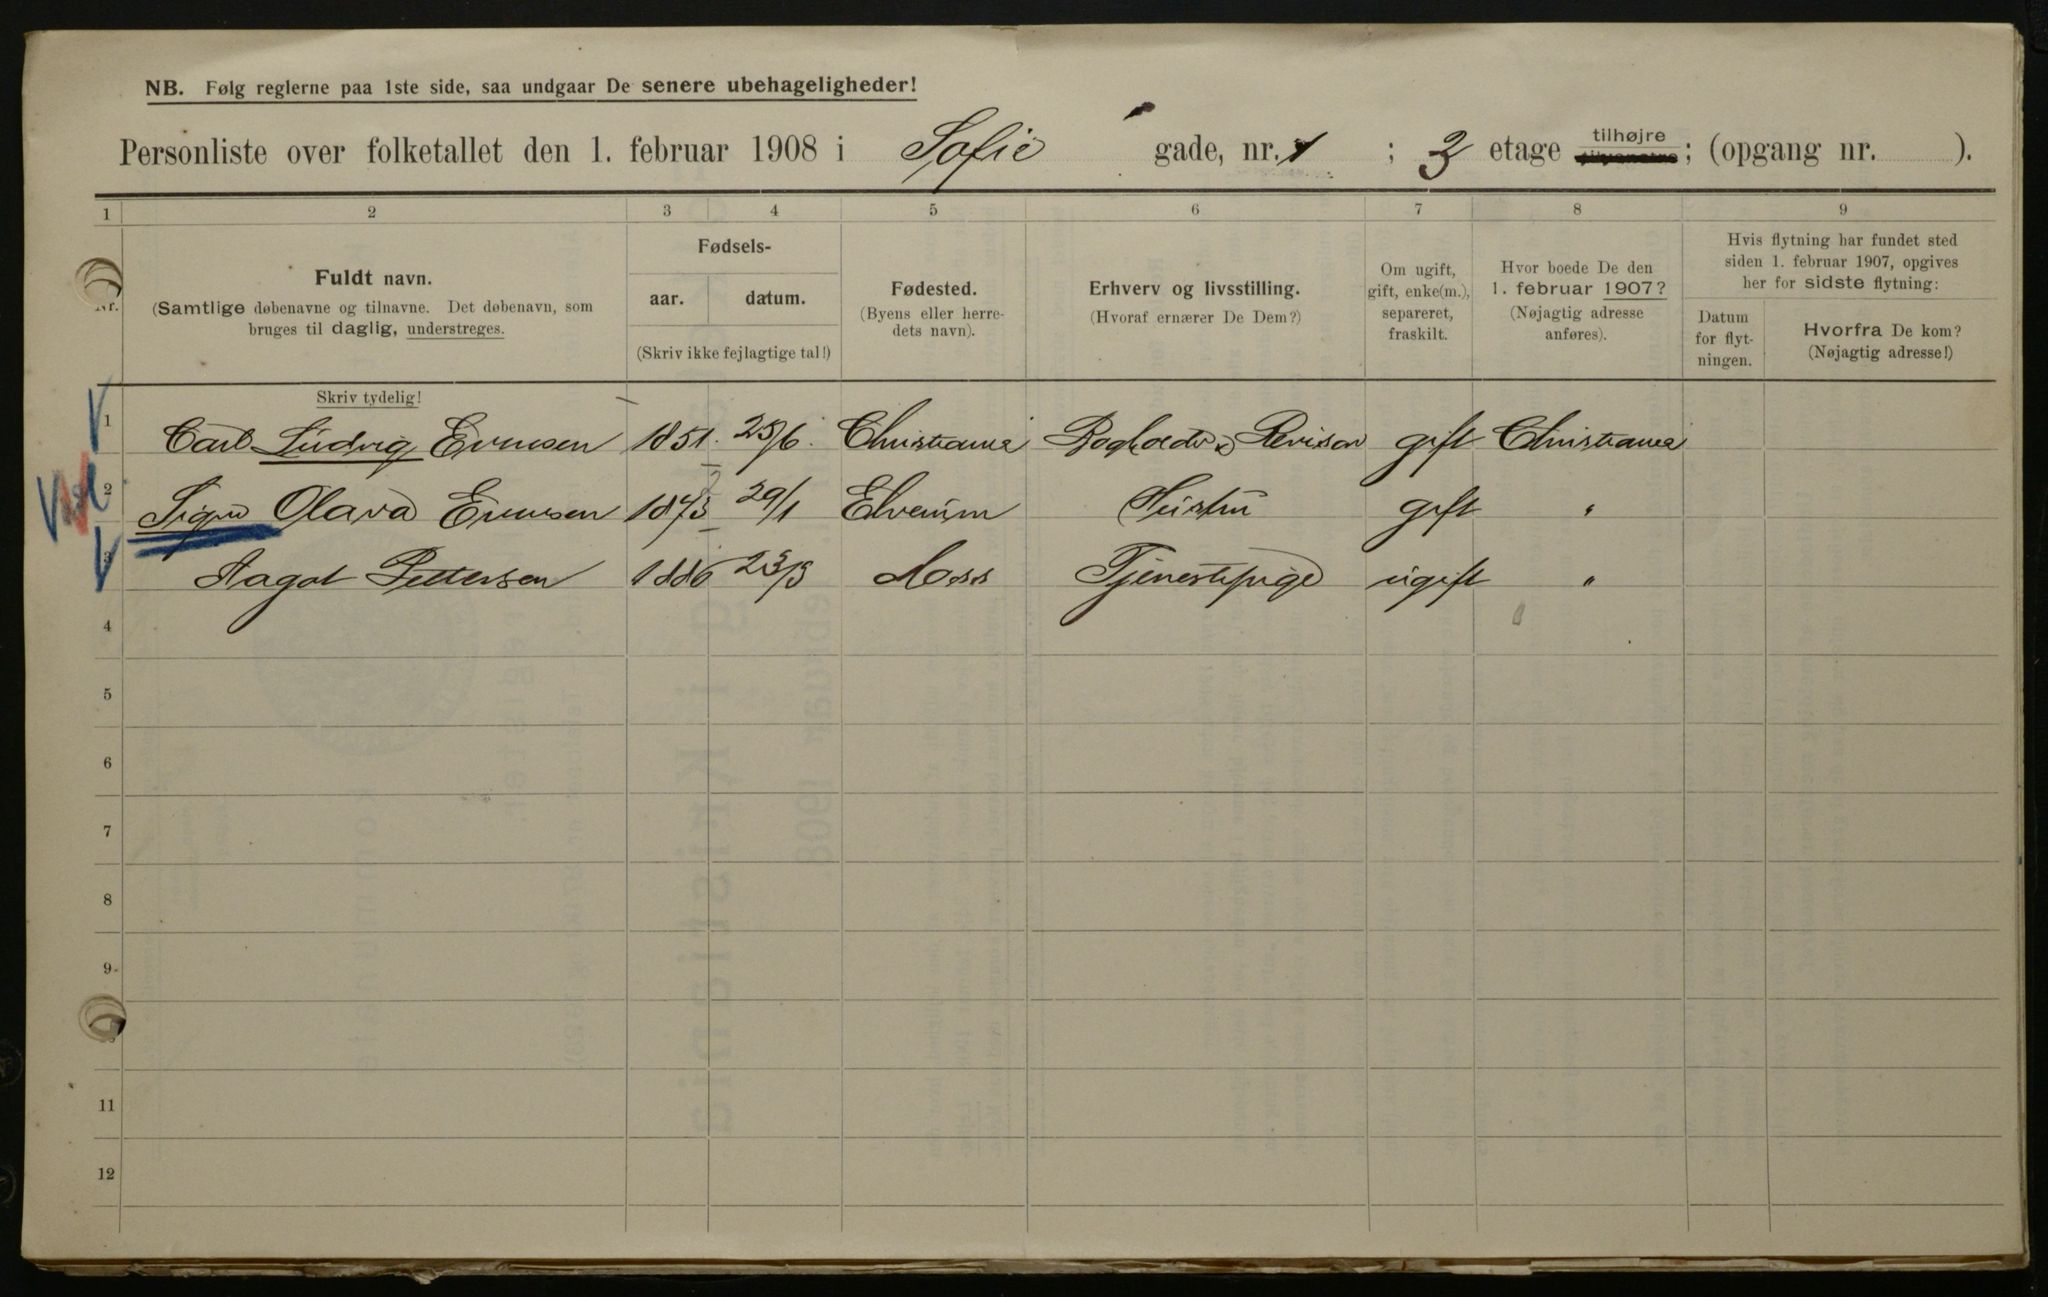 NB. Følg reglerne paa 1ste side, saa undgaar De senere ubehageligheder!
Personliste over folketallet den 1. februar 1908 i Sofie gade, nr. 1 ; 3 etage tilhøjre tilvenstre; (opgang nr. ).
1 2 3 4 5 6 7 8 9
Nr.
Fuldt navn.
(Samtlige døbenavne og tilnavne. Det døbenavn, som
bruges til daglig, understreges.
Fødsels-
aar. datum.
(Skriv ikke fejlagtige tal!)
Fødested.
(Byens eller herre-
dets navn).
Erhverv og livsstilling.
(Hvoraf ernærer De Dem?)
Om ugift,
gift, enke(m.),
separeret,
fraskilt.
Hvor boede De den
1. februar 1907?
(Nøjagtig adresse
anføres).
Hvis flytning har fundet sted
siden 1. februar 1907, opgives
her for sidste flytning:
Datum
for flyt-
ningen.
Hvorfra De kom?
(Nøjagtig adresse!)
Skriv tydelig!
1 Carl Ludvig 1851. 25/6. Christiania Bogholder & Revisor gift Christiania
2 Olava 1873 29/1 Elverum Hustru gift "
3 Aagot Pettersen 1886 23/3 Moss Tjenestepige ugift "
4
5
6
7
8
9
11
12